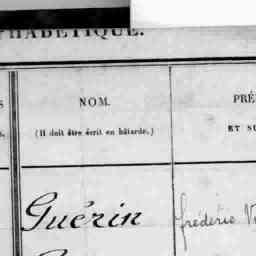 PHABÉTIQUE.
NOM.
PRÉ
(Il doit être écrit en bâtarde.)
ET SU
Guérin
frédéric